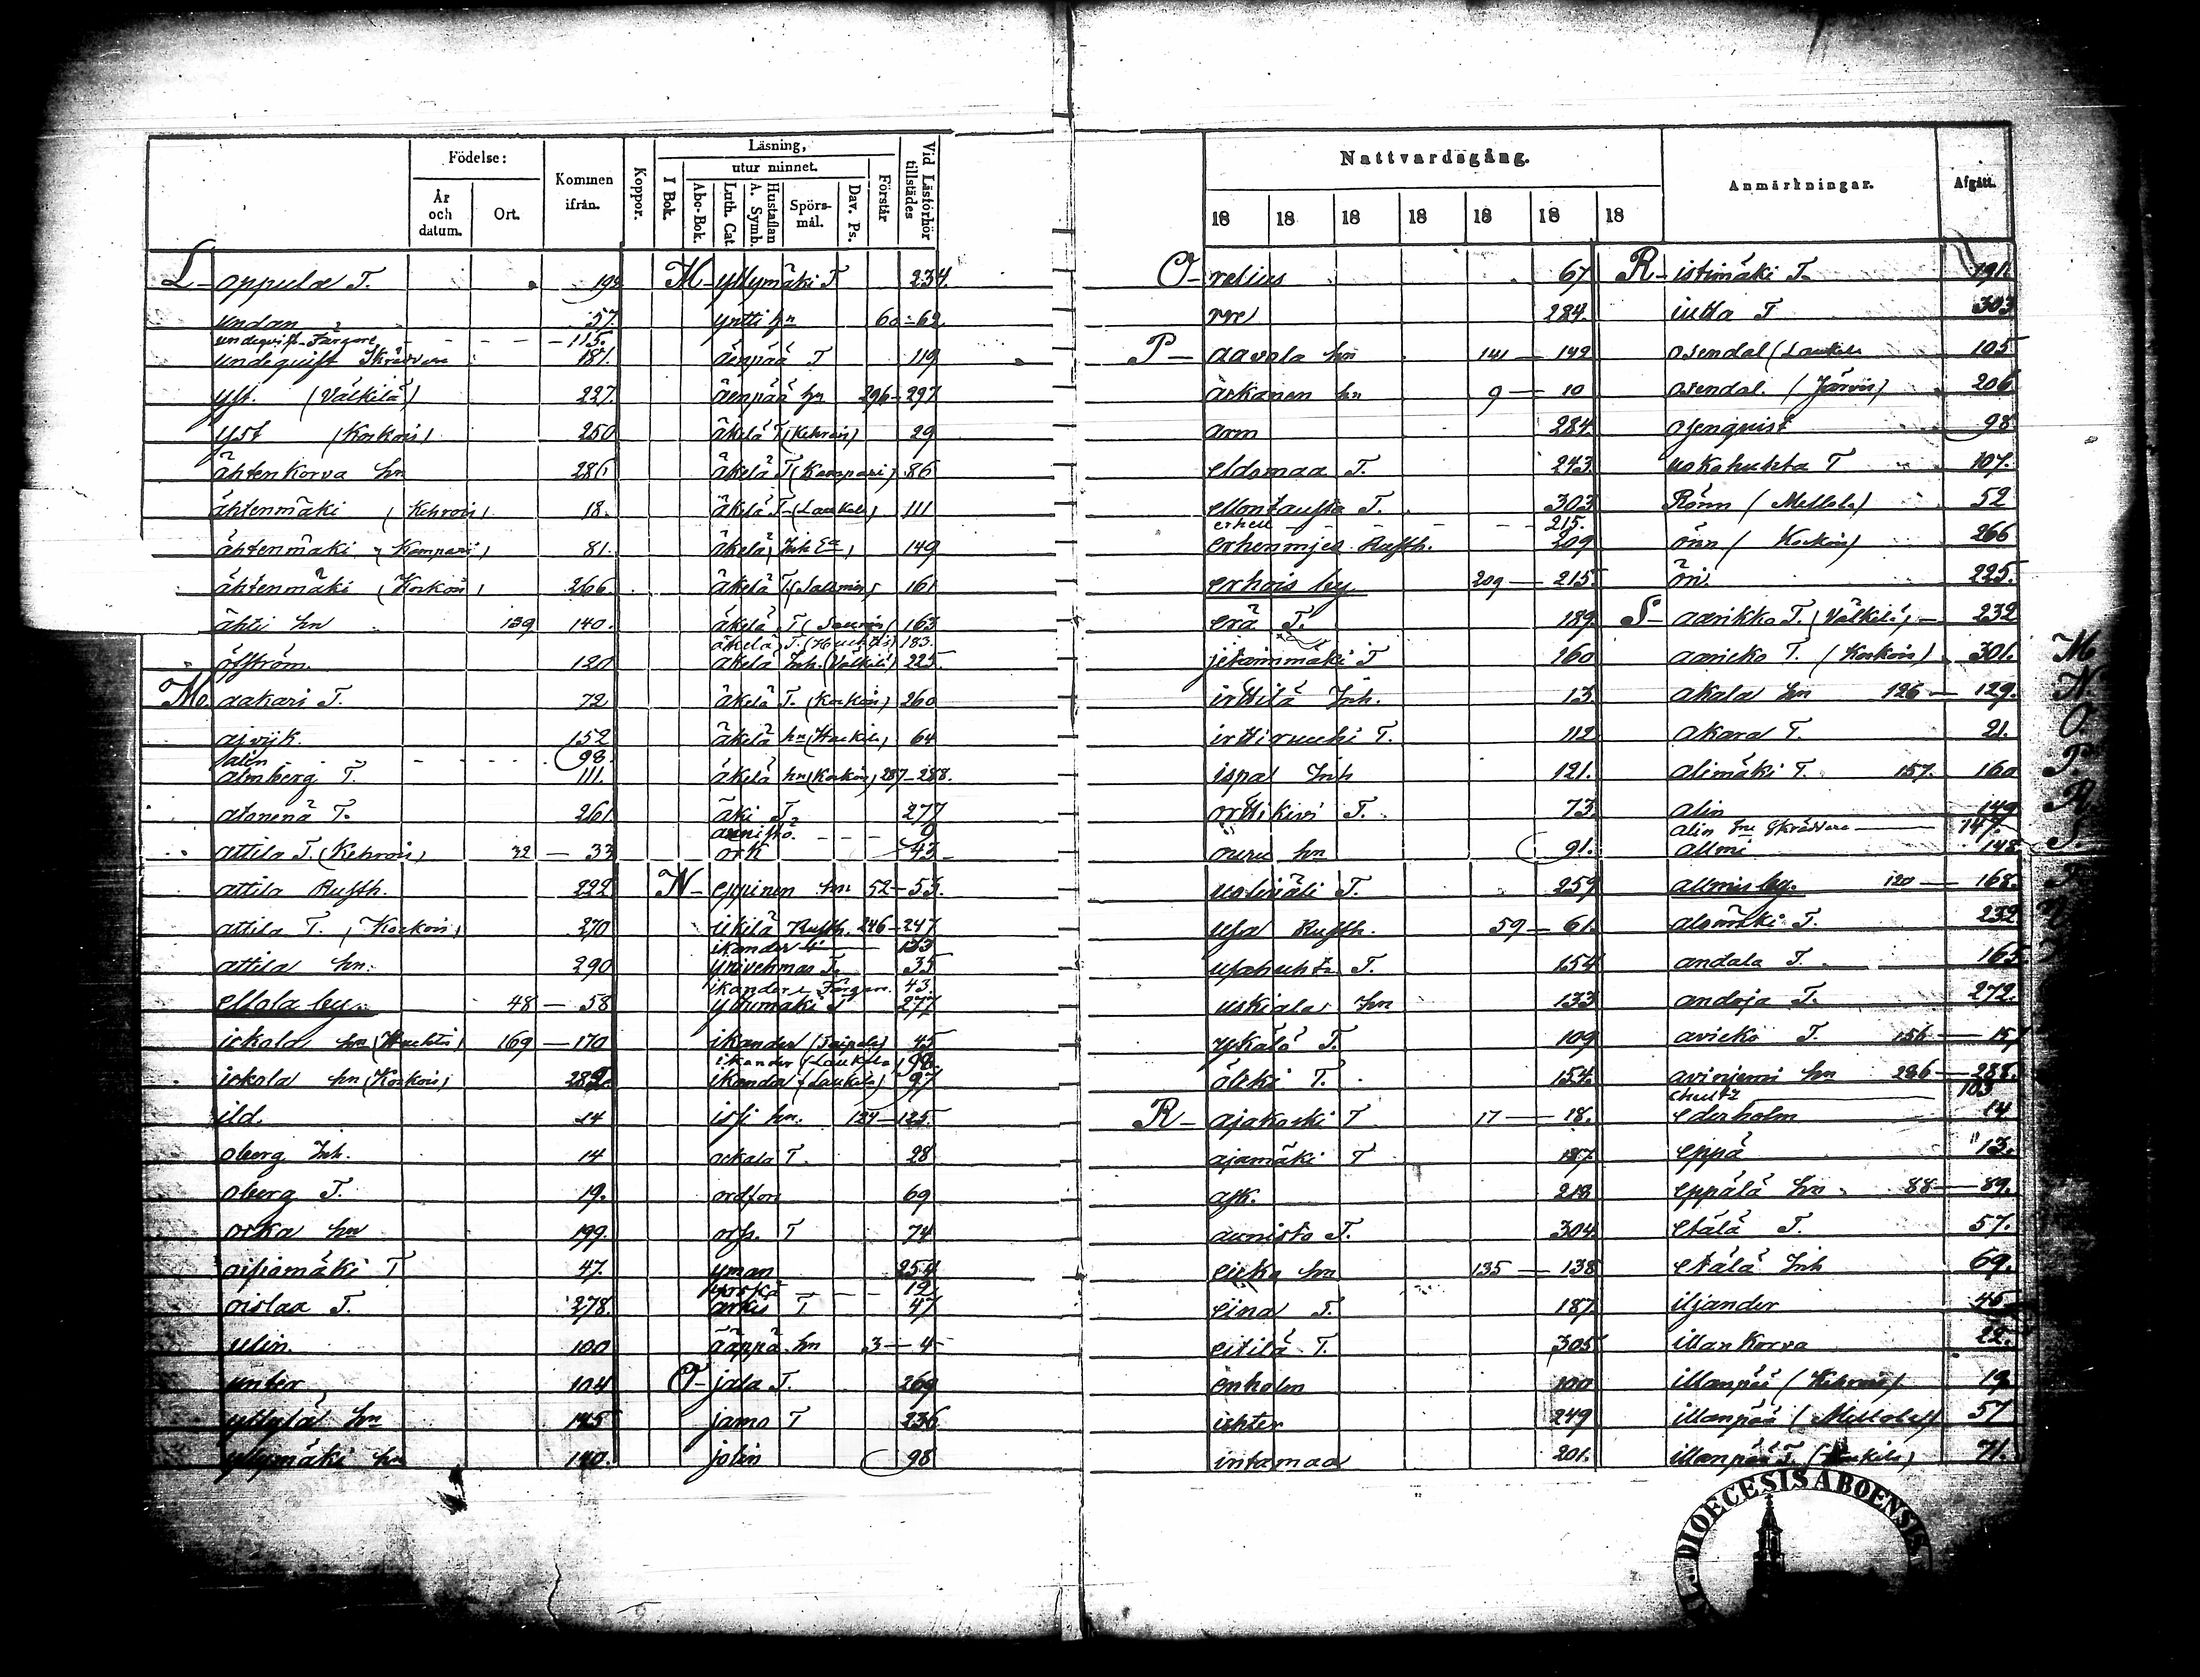 Födelse:
År och datum.
Ort.
Kommen ifrån.
Koppor.
Läsning,
utur minnet.
I Bok.
Abc-Bok.
Luth. Cat.
Hustaflan A. Symb.
Spörsmål.
Dav. Ps.
Förstår
Vid Läsförhör tillstädes
L- oppula T. 192
undan 57.
undequist Färgare - - - - 115.
undequist Skräddare 187.
yst. (Välkilä) 227.
yst (Korkois) 250
ähtenkorva hn 286
ähtenmäki (Kehrois) 18.
ähtenmäki (Kampari) 81.
ähtenmäki (Korkois) 266.
ähti hn 139 140.
öfström. 120
M. aakari T. 72
152
alin - - - - 98.
almberg T. 111.
261
attila T. (Kehrois) 32 — 33
attila Rusth. 222
attila T. (Korkois) 270
attila hn. 290
ellola by. 48 — 58
ickala hn (Huchtis) 169 — 170
ickala hn (Korkois) 289.
ild. 14
oberg Inh. 14
oberg T. 19.
orka hn 199.
oisiomäki T 47.
oislaa T. 278.
ulin. 100
unter 104
yllylä hn 145
yllymäki hn 140.
M- yllymäki T 234.
yntti hn 60 - 62.
äenpää T 119
äenpää hn 296 - 297
äkelä T (Kehrois) 29
äkelä T (Kampari) 86
äkelä T- (Laukela) 111
äkelä 149
äkelä T. (Salmis) 161
äkelä T 163
äkelä T. (Huchtis) 183.
äkelä Inh. (Välkilä) 225.
äkelä T. (Korkois) 260
äkelä hn 64
äkelä hn (Korkois) 287 - 288.
äki T. 277
9
örk 43
N- eppinen hn 52 - 53.
ikilä Rusth. 246 - 247
ikander 133
T. 35
ikander Färgare. 43.
277
ikander 45
ikander (Laukela) 98.
ikander (Laukela) 97
issi hn. 124 - 125.
ockala T. 28
ordfors 69
orss. T 74
yman 254
12
T 47
ääppä hn 3 — 4
O- jala T. 269
jama T 236
jolin 98
Nattvardsgång.
18 18 18 18 18 18 18
Anmärkningar.
Afgått.
O- relius 67.
rre 284.
P- aavola hn 141 — 142
askanen hn 9 — 10
arm 284.
eldomaa T. 243.
ellontausta T. 303
erhell - - - - 215.
erhenmies Rusth. 209
erhois by 209 — 215.
erä T. 189.
jetarinmäki T 160
irttilä Inh. 13.
irttiruuhi T. 112
ispa Inh 121.
orttikivi T. 73.
ouru hn 91.
259
usa Rusth. 59 — 61.
usahuhta T. 154
uskiala hn 133
ypkälä T. 109
ölkki T. 154.
R- ajakoski T 17 — 18.
ajamäki T 187.
ask. 218
aunisto T. 304
eiko hn 135 — 138
eina T. 187.
eitilä T. 305
enholm 100
ichter 249
intamaa 201.
R- istimäki T. 191.
iutta T 303
osendal (Laukela 105
osendal. (Järvis) 206
osenquist 98
uskahuhta T 107.
Rönn (Mellola) 52
önn (Korkois) 266
öri. 225.
S- aarikko T. (Välkilä) 232
aaricko T. (Korkois) 301.
akala hn 126 — 129.
akara T. 21.
alimäki T. 157. 160
alin 149
alin Skräddare — 147.
allmi 148.
allmis by. 120 — 168.
alomäki T. 232
andala T. 165
andoja T. 272.
avicko T. 156 — 157
aviniemi hn 286 — 288.
chultz 103
ederholm 14
eppä 13.
eppälä hn 88 — 89.
etälä T. 57.
etälä Inh 69.
iljander 45
illankorva 22.
illanpää (Kehrois) 19
illanpää (Mellola) 57
illanpää T. (Laukila) 71.
M
N.
O.
P.
R.
S.
DIOECESIS ABOENSIS